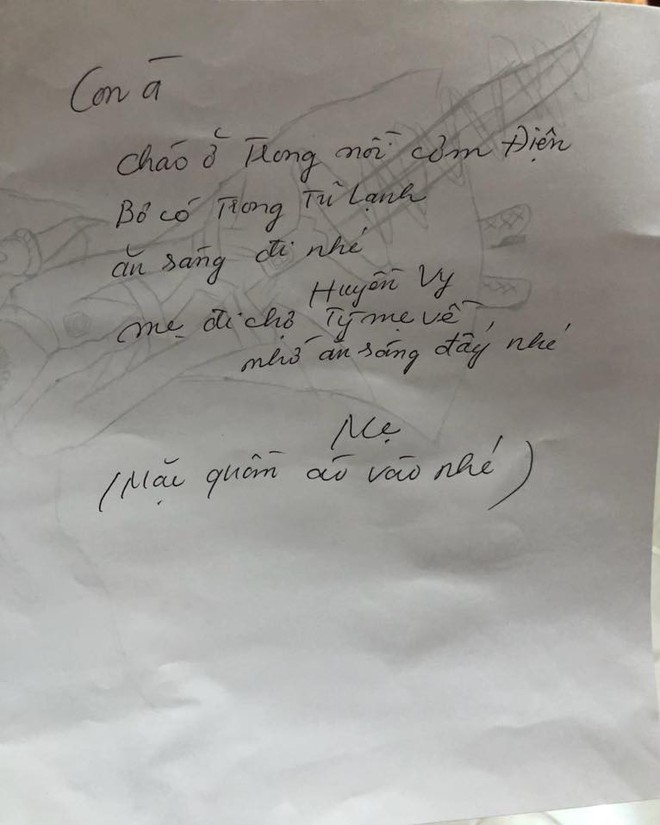 Con à
cháo ở trong nồi cơm Điện
Bơ có trong Tủ Lạnh
ăn sáng đi nhé
Huyền Vy
mẹ đi chợ Tý mẹ về
nhớ ăn sáng đấy nhé
Mẹ
(Mặc quần áo vào nhé)